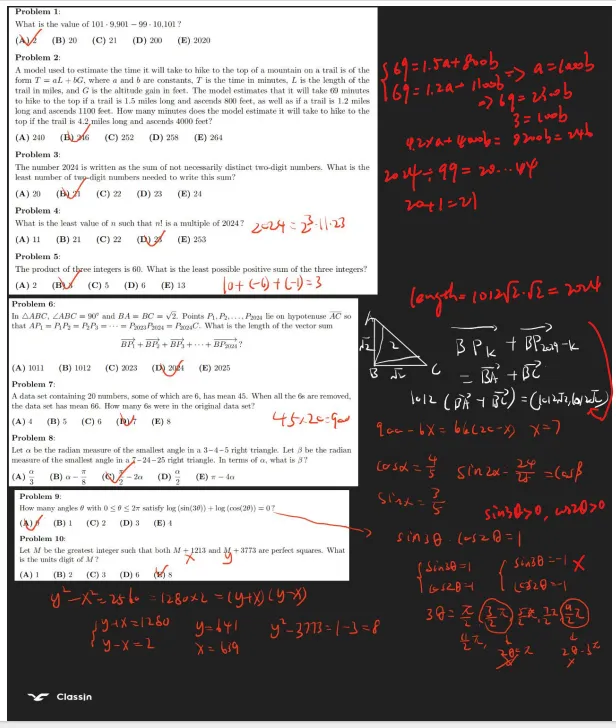 Problem 1:
What is the value of 101 · 9,901 − 99 · 10,101 ?
(A) 2 (B) 20 (C) 21 (D) 200 (E) 2020
Problem 2:
A model used to estimate the time it will take to hike to the top of a mountain on a trail is of the
form T = aL + bG, where a and b are constants, T is the time in minutes, L is the length of the
trail in miles, and G is the altitude gain in feet. The model estimates that it will take 69 minutes
to hike to the top if a trail is 1.5 miles long and ascends 800 feet, as well as if a trail is 1.2 miles
long and ascends 1100 feet. How many minutes does the model estimate it will take to hike to the
top if the trail is 4.2 miles long and ascends 4000 feet?
(A) 240 (B) 246 (C) 252 (D) 258 (E) 264
Problem 3:
The number 2024 is written as the sum of not necessarily distinct two-digit numbers. What is the
least number of two-digit numbers needed to write this sum?
(A) 20 (B) 21 (C) 22 (D) 23 (E) 24
Problem 4:
What is the least value of n such that n! is a multiple of 2024?
(A) 11 (B) 21 (C) 22 (D) 23 (E) 253
2024 = 2³·11·23
Problem 5:
The product of three integers is 60. What is the least possible positive sum of the three integers?
(A) 2 (B) 3 (C) 5 (D) 6 (E) 13
10+(-6)+(-1)=3
69=1.5a+800b
69=1.2a+1100b
=> a=1000b
=> 69=2300b
3=100b
4.2×a+4000b=8200b=246
2024÷99=20...44
20+1=21
Problem 6:
In △ABC, ∠ABC = 90° and BA = BC = √2. Points P₁, P₂, . . . , P₂₀₂₄ lie on hypotenuse AC so
that AP₁ = P₁P₂ = P₂P₃ = · · · = P₂₀₂₃P₂₀₂₄ = P₂₀₂₄C. What is the length of the vector sum
BP₁ + BP₂ + BP₃ + · · · + BP₂₀₂₄ ?
(A) 1011 (B) 1012 (C) 2023 (D) 2024 (E) 2025
length=1012√2·√2=2024
A
√2 2
B √2 C
=BA+BC
1012(BA+BC)=(1012√2,1012√2)
Problem 7:
A data set containing 20 numbers, some of which are 6, has mean 45. When all the 6s are removed,
the data set has mean 66. How many 6s were in the original data set?
(A) 4 (B) 5 (C) 6 (D) 7 (E) 8
45×20=900
900-6x=66(20-x) x=7
Problem 8:
Let α be the radian measure of the smallest angle in a 3−4−5 right triangle. Let β be the radian
measure of the smallest angle in a 7−24−25 right triangle. In terms of α, what is β ?
(A) α/3 (B) α − π/8 (C) π/2 − 2α (D) α/2 (E) π − 4α
cosα=4/5 sin2α=24/25=cosβ
Problem 9:
How many angles θ with 0 ≤ θ ≤ 2π satisfy log (sin(3θ)) + log (cos(2θ)) = 0 ?
(A) 0 (B) 1 (C) 2 (D) 3 (E) 4
sin3θ>0, cos2θ>0
sin3θ·cos2θ=1
sin3θ=1
cos2θ=1
sin3θ=-1
cos2θ=-1
Problem 10:
Let M be the greatest integer such that both M + 1213 and M + 3773 are perfect squares. What
is the units digit of M ?
(A) 1 (B) 2 (C) 3 (D) 6 (E) 8
x y
y²-x²=2560=1280×2=(y+x)(y-x)
y+x=1280 y=641 y²-3773=1-3=8
y-x=2 x=639
ClassIn